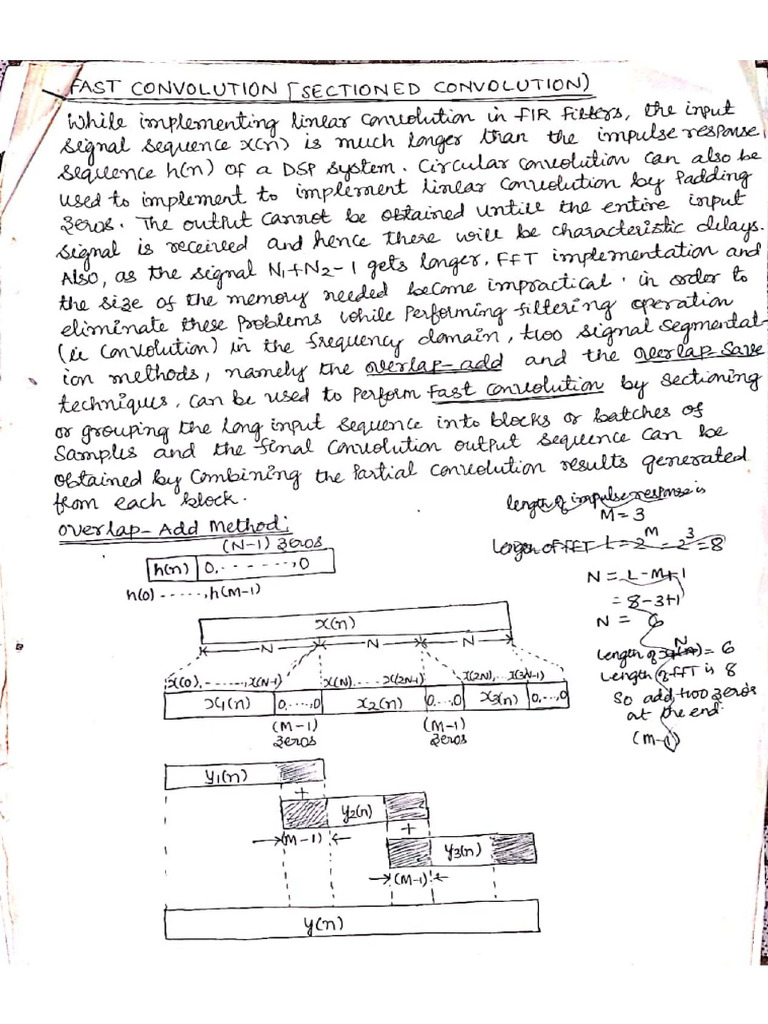 FAST CONVOLUTION [SECTIONED CONVOLUTION)
While implementing linear convolution in FIR Filters, the input
signal sequence x(n) is much longer than the impulse response
sequence h(n) of a DSP system. Circular convolution can also be
used to implement to implement linear convolution by Padding
zeros. The output cannot be obtained untill the entire input
signal is received and hence there will be characteristic delays.
Also, as the signal N1+N2-1 gets longer, FFT implementation and
the size of the memory needed become impractical. in order to
eliminate these Problems while Performing filtering operation
(ie Convolution) in the frequency domain, two signal segmentat-
ion methods, namely the overlap-add and the overlap-save
techniques, can be used to perform fast convolution by sectioning
or grouping the long input sequence into blocks or batches of
Samples and the final Convolution output sequence can be
obtained by Combining the Partial Convolution results generated
from each block.
length of impulse response is
M=3
Overlap-Add Method:
(N-1) zeros
h(n) 0,- - - - - -,0
h(0) - - - - -, h(M-1)
Length of FFT L=2^M=2^3=8
N=L-M+1
=8-3+1
N= 6
Length of (n)=6
N
Length of FFT is 8
So add two zeros
at the end
(M-1)
x(n)
N N N
x(0),- - - - - -,x(N-1) x(N), . . . x(2N-1) x(2N), . . x(3N-1)
x1(n) 0,....,0 x2(n) 0,...,0 x3(n) 0,..,0
(M-1) (M-1)
zeros zeros
y1(n)
+
y2(n)
(M-1) +
y3(n)
(M-1)
y(n)